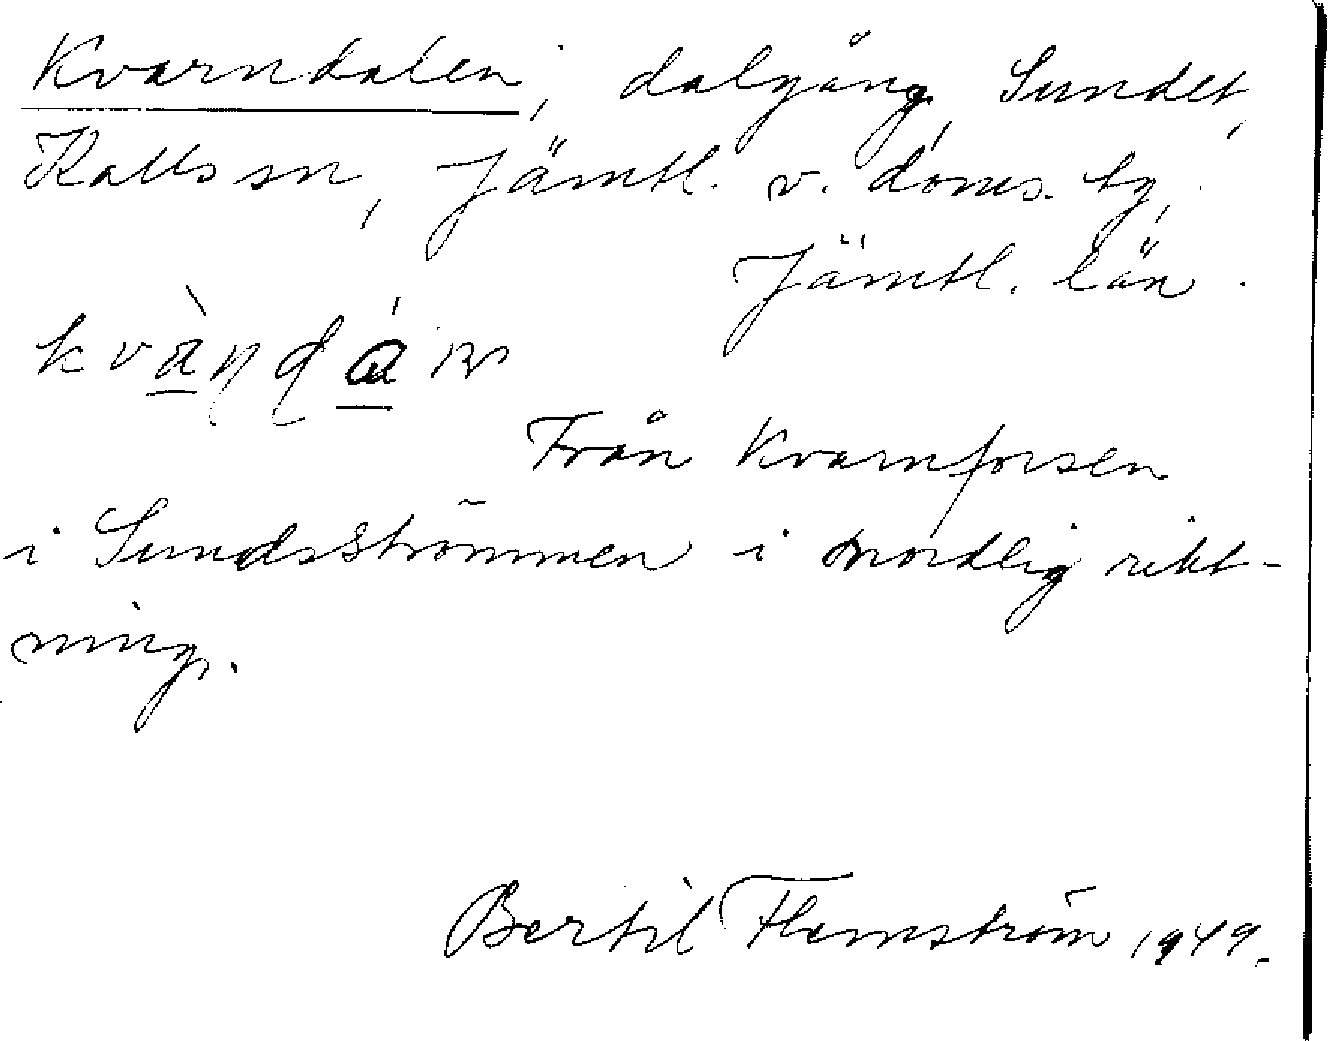 Kvarndalen, dalgång, Sundet,
Kalls sn, Jämtl. v. doms. hg,
Jämtl. län.
Från Kvarnforsen
i Sundsströmmen i nordlig rikt-
ning.
Bertil Flemström 1949.